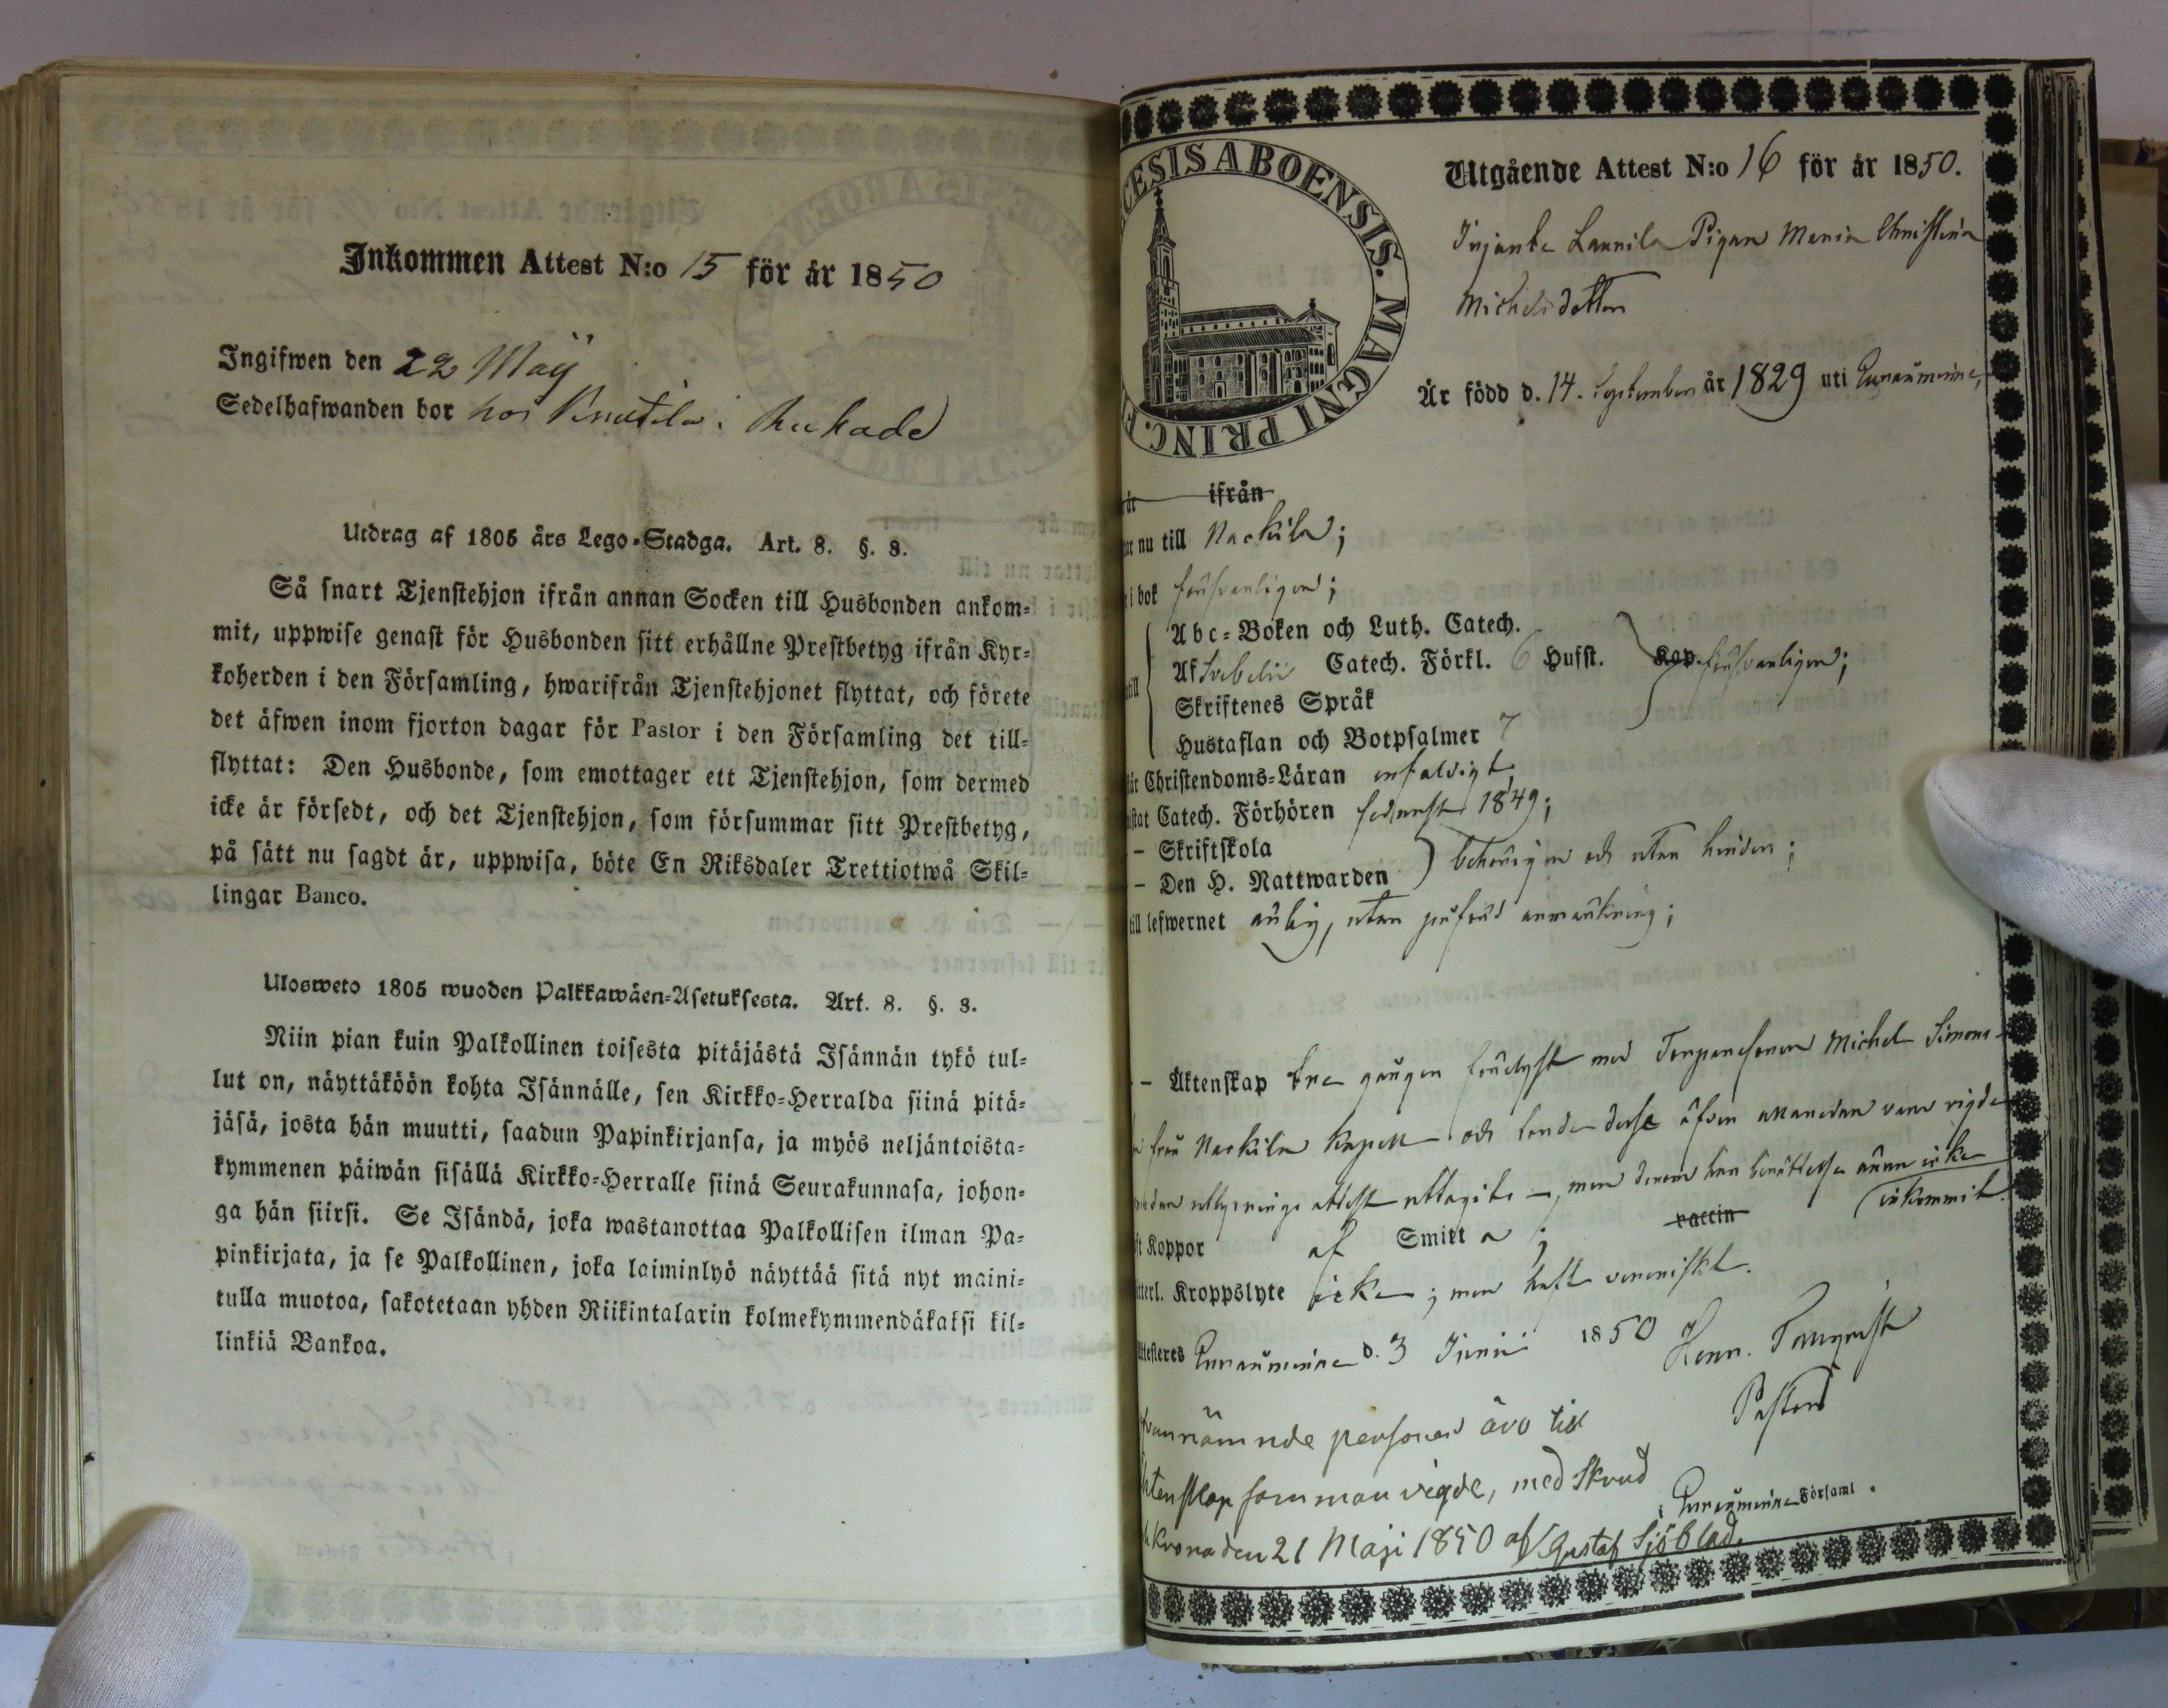 Inkommen Attest N:o 15 för år 1850
Ingifwen den 22 Maÿ
Sedelhafwanden bor hos Knutila i
Utdrag af 1805 års Lego-Stadga. Art. 8. §. 3.
Så snart Tjenstehjon ifrån annan Socken till Husbonden ankom-
mit, uppwise genast för Husbonden sitt erhållne Prestbetyg ifrån Kyr-
koherden i den Församling, hwarifrån Tjenstehjonet flyttat, och förete
det äfwen inom fjorton dagar för Pastor i den Församling det till-
flyttat: Den Husbonde, som emottager ett Tjenstehjon, som dermed
icke är försedt, och det Tjenstehjon, som försummar sitt Prestbetyg,
på sätt nu sagdt är, uppwisa, böte En Riksdaler Trettiotwå Skil-
lingar Banco.
Ulosweto 1805 wuoden Palkkawäen-Asetuksesta. Art. 8. §. 3.
Niin pian kuin Palkollinen toisesta pitäjästä Isännän tykö tul-
lut on, näyttäköön kohta Isännälle, sen Kirkko-Herralda siinä pitä-
jäsä, josta hän muutti, saadun Papinkirjansa, ja myös neljäntoista-
kymmenen päiwän sisällä Kirkko-Herralle siinä Seurakunnasa, johon-
ga hän siirsi. Se Isändä, joka wastanottaa Palkollisen ilman Pa-
pinkirjata, ja se Palkollinen, joka laiminlyö näyttää sitä nyt maini-
tulla muotoa, sakotetaan yhden Riikintalarin kolmekymmendäkaksi kil-
linkiä Bankoa.
CESIS ABOENSIS. MAGNI PRINC. F
Utgående Attest N:o 16 för år 1850.
Injante Laurila Pigan Maria Christina
Michelsdotter
Är född d. 14. September år 1829 uti Euraåminne,
år ifrån
nu till Nackila;
i bok försvarligen;
Abc-Boken och Luth. Catech.
Af Svebelii Catech. Förkl. 6 Husst. Kap. försvarligen;
Skriftenes Språk
Hustaflan och Botpsalmer 7
Christendoms-Läran enfaldigt;
Catech. Förhören sednast 1849;
- Skriftskola
- Den H. Nattwarden behörigen och utan hinder;
till lefwernet ärlig, utan påförd anmärkning;
- Äktenskap tre gånger förelyst med Torparesonen Michel Simons-
från Nackila Kapell och
attest uttagits -, men derom har underrättelse ännu icke
inkommit.
Koppor af Smitt a; vaccin
Kroppslyte icke; men haft veneriskt.
Attesteres Euraåminne d. 3 Junii 1850 Henr.
Pastor
i Euraåminne Församl.
personer äro till
sammanvigde, med Skrud
Krona den 21 Maji 1850 af Gustaf Sjöblad.